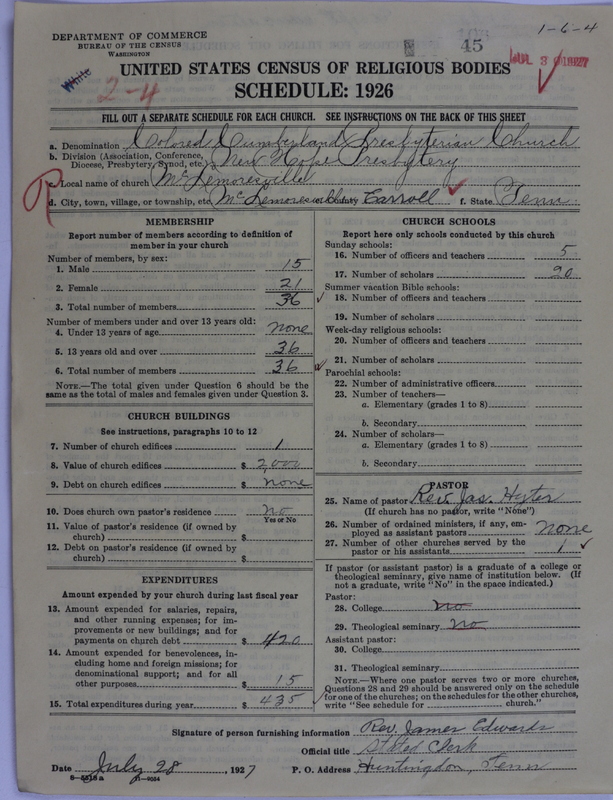 1-6-4
DEPARTMENT OF COMMERCE
BUREAU OF THE CENSUS
WASHINGTON
45
White
2-4
UNITED STATES CENSUS OF RELIGIOUS BODIES
SCHEDULE: 1926
FILL OUT A SEPARATE SCHEDULE FOR EACH CHURCH. SEE INSTRUCTIONS ON THE BACK OF THIS SHEET
a. Denomination Colored Cumberland Presbyterian Church
b. Division (Association, Conference, Diocese, Presbytery, Synod, etc.) New Hope Presbytery
R
c. Local name of church McLemoresville
d. City, town, village, or township, etc. McLemoresville e. County Carroll f. State Tenn
MEMBERSHIP
Report number of members according to definition of
member in your church
Number of members, by sex:
1. Male 15
2. Female 21
3. Total number of members 36
Number of members under and over 13 years old:
4. Under 13 years of age none
5. 13 years old and over 36
6. Total number of members 36
NOTE.—The total given under Question 6 should be the
same as the total of males and females given under Question 3.
CHURCH BUILDINGS
See instructions, paragraphs 10 to 12
7. Number of church edifices 1
8. Value of church edifices $ 2000
9. Debt on church edifices $ none
10. Does church own pastor's residence No
Yes or No
11. Value of pastor's residence (if owned by
church) $
12. Debt on pastor's residence (if owned by
church) $
EXPENDITURES
Amount expended by your church during last fiscal year
13. Amount expended for salaries, repairs,
and other running expenses; for im-
provements or new buildings; and for
payments on church debt $ 420
14. Amount expended for benevolences, in-
cluding home and foreign missions; for
denominational support; and for all
other purposes $ 15
15. Total expenditures during year $ 435
CHURCH SCHOOLS
Report here only schools conducted by this church
Sunday schools:
16. Number of officers and teachers 5
17. Number of scholars 20
Summer vacation Bible schools:
18. Number of officers and teachers
19. Number of scholars
Week-day religious schools:
20. Number of officers and teachers
21. Number of scholars
Parochial schools:
22. Number of administrative officers
23. Number of teachers—
a. Elementary (grades 1 to 8)
b. Secondary
24. Number of scholars—
a. Elementary (grades 1 to 8)
b. Secondary
PASTOR
25. Name of pastor Rev. Jas. Hyter
(If church has no pastor, write "None")
26. Number of ordained ministers, if any, em-
ployed as assistant pastors none
27. Number of other churches served by the
pastor or his assistants 1
If pastor (or assistant pastor) is a graduate of a college or
theological seminary, give name of institution below. (If
not a graduate, write "No" in the space indicated.)
Pastor:
28. College no
29. Theological seminary No
Assistant pastor:
30. College
31. Theological seminary
NOTE.—Where one pastor serves two or more churches,
Questions 28 and 29 should be answered only on the schedule
for one of the churches; on the schedules for the other churches,
write "See schedule for church."
Signature of person furnishing information Rev. James Edwards
Official title Stated Clerk
Date July 28, 1927 P. O. Address Huntingdon, Tenn